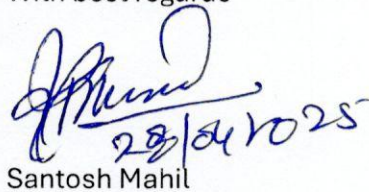 With best regards
28/04/2025
Santosh Mahil